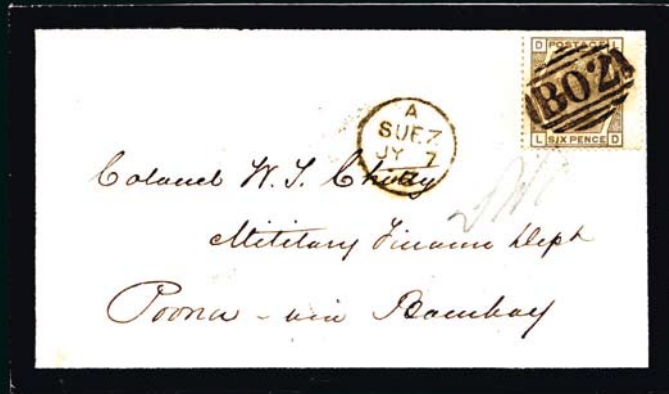 D POSTAGE L
B02
L SIX PENCE D
A
SUEZ
JY 7
Colonel W. T. Chitty
Military Finance Dept
Poona - via Bombay